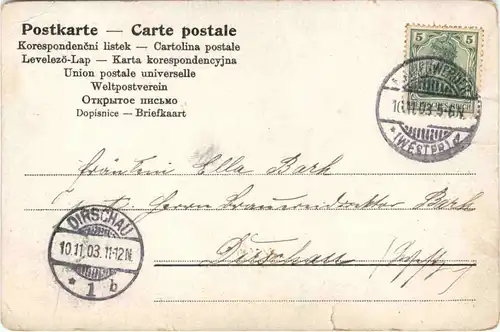 Postkarte — Carte postale
Korespondenční listek — Cartolina postale
Levelező-Lap — Karta korespondencyjna
Union postale universelle
Weltpostverein
Открытое письмо
Dopisnice — Briefkaart
5
10.11.03.5-6N.
(WESTPR) d
Fräulein Ella Bark
Herrn Brauereidirektor Bark
Dirschau
DIRSCHAU
10.11.03.11-12N.
1 b